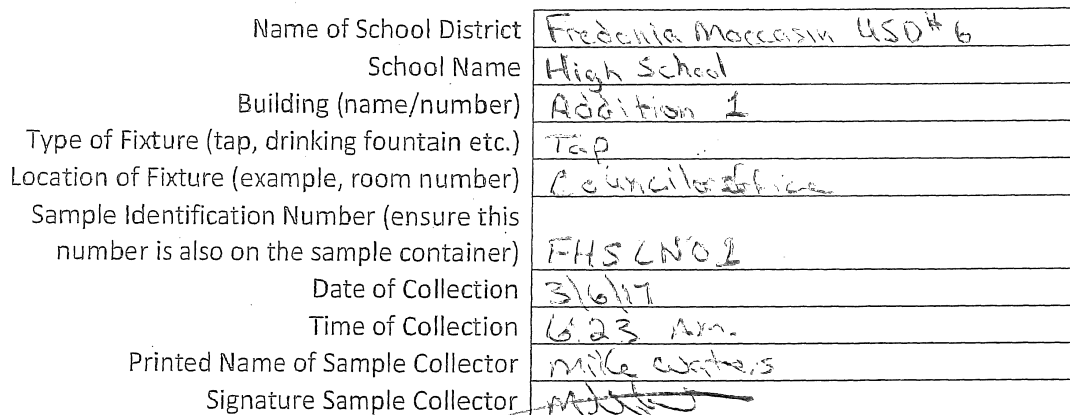 Name of School District Fredonia Moccasin USD # 6
School Name High School
Building (name/number) Addition 1
Type of Fixture (tap, drinking fountain etc.) Tap
Location of Fixture (example, room number) Councilor office
Sample Identification Number (ensure this
number is also on the sample container) FHSCNO1
Date of Collection 3/6/17
Time of Collection 6:23 Am.
Printed Name of Sample Collector Mike Waters
Signature Sample Collector